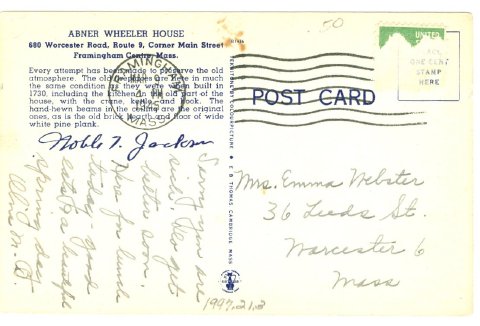 ABNER WHEELER HOUSE
680 Worcester Road, Route 9, Corner Main Street
Framingham Centre, Mass.
Every attempt has been made to preserve the old
atmosphere. The old fireplaces are now in much
the same condition as they were when built in
1730, including the kitchen in the old part of the
house, with the crane, kettle and hook. The
hand-hewn beams in the ceiling are the original
ones, as is the old brick hearth and floor of wide
white pine plank.
Noble T. Jackson
Sorry you are
sick. Do get
better soon.
Here for lunch
today - good
eats & a beautiful
spring day.
FRAMINGHAM
MASS
POST CARD
UNITED
ONE CENT
STAMP
HERE
.50
E B THOMAS CAMBRIDGE MASS
Mrs. Emma Webster
36 Leeds St.
Worcester 6
Mass
1997.21.2